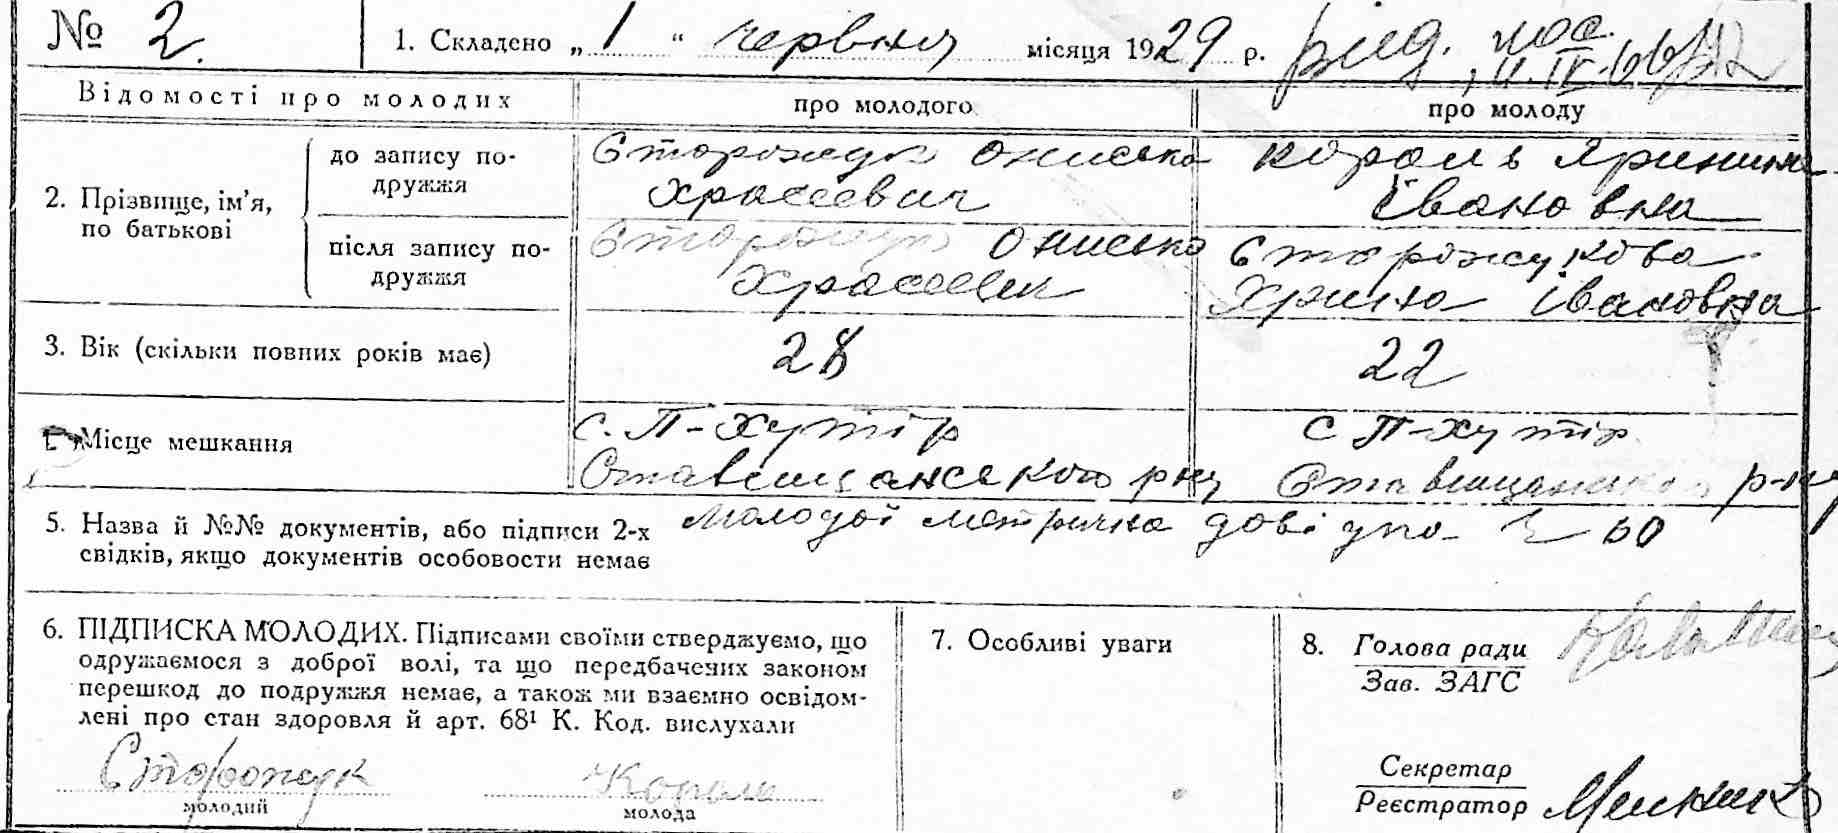 № 2. 1. Складено „ 1 “ червня місяця 1929 р.
Відомості про молодих
про молодого
про молоду
2. Прізвище, ім’я, по батькові
до запису по-
дружжя
Сторожук Ониська
Храсєевич
Король Ярина
Івановна
після запису по-
дружжя
Сторожук Ониско
Сторожукова
Хрина Івановна
3. Вік (скільки повних років має)
28
22
Місце мешкання
с. П-Хутір
Ставищанського р-ну
с П-Хутір
Ставищанського р-ну
5. Назва й №№ документів, або підписи 2-х
свідків, якщо документів особовости немає
Молодої метрична довідка
6. ПІДПИСКА МОЛОДИХ. Підписами своїми стверджуємо, що
одружаємося з доброї волі, та що передбачених законом
перешкод до подружжя немає, а також ми взаємно освідом-
лені про стан здоровля й арт. 68¹ К. Код. вислухали
Сторожук
молодий
Король
молода
7. Особливі уваги
8. Голова ради
Зав. ЗАГС
Секретар
Реєстратор